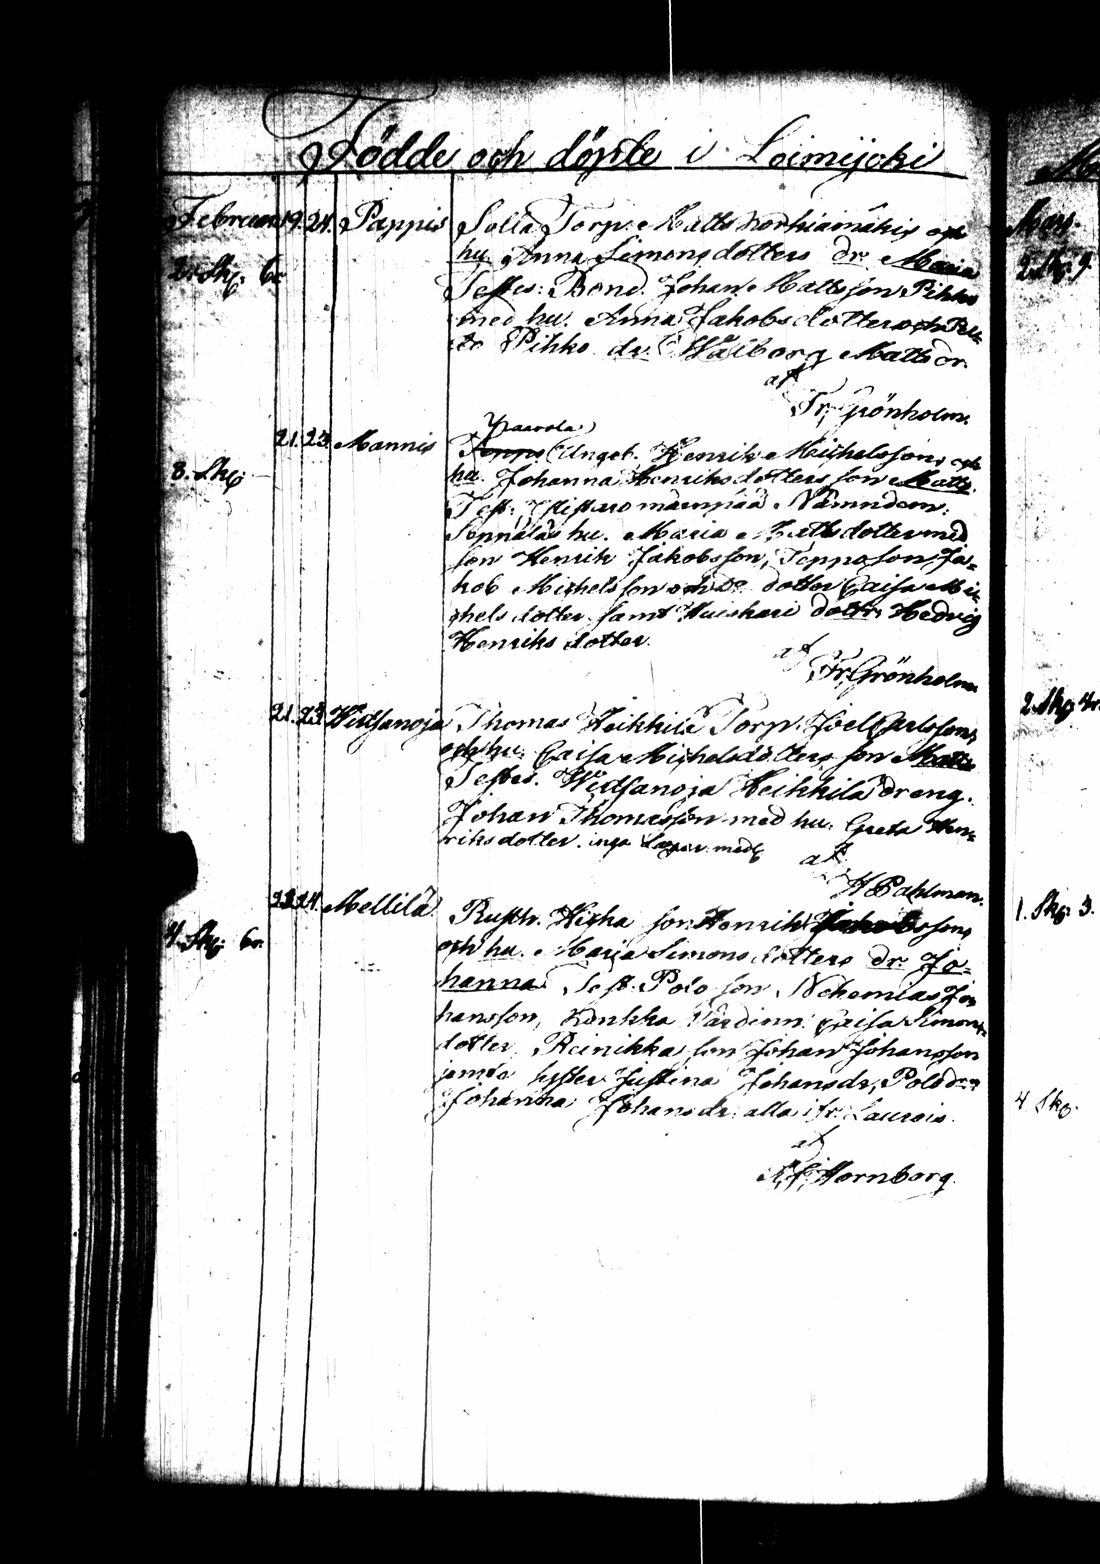 Födde och döpte i Loimijoki
Februari 19. 24. Pappis Solla Torp. Matts Korkiamäkis och
2. Skp. 6r. hu. Anna Simonsdotters dr. Maria
Testes: Bond. Johan Mattsson Pihko
med hu. Anna Jakobsdotter och
Pihko dr. Walborg Mattsdr.
af
Fr. Grönholm.
Yaarola
21. 23. Mannis Teppo Ungot. Henrik Michelsons och
3. Skp. hu. Johanna Henriksdotters son Matts.
Test: Nämndem.
Seppäläs hu. Maria Mattsdotter med
son Henrik Jakobsson, Teppo son Ja-
kob Michelsson och Do dotter Caisa Mi-
chelsdotter samt dottr. Hedvig
Henriksdotter.
af
Fr. Grönholm
21. 23. Widsanoja Thomas Heikkilä Torp. Joel Carlssons
och hu. Caisa Michelsdotters son Matts
Testes. Widsanoja Heikkilä dreng.
Johan Thomasson med hu. Greta Hen-
riksdotter. inga
af
H Pahlman.
22. 24. Mellilä Rusth. son Henrik Jakobssons
4. Skp. 6r. och hu. Maria Simonsdotters dr. Jo-
hanna Test. Polo son Nehemias Jo-
hansson, Konkka Värdinn. Caisa Simons-
dotter, Reinikka son Johan Johansson
jemte syster Justina Johansdr, Polo dr
Johanna Johansdr. alla ifr. Laurois.
af
Hornborg.
Mars.
2. Skp. 9.
2. Skp. 4r.
1. Skp. 3.
4 Skp.